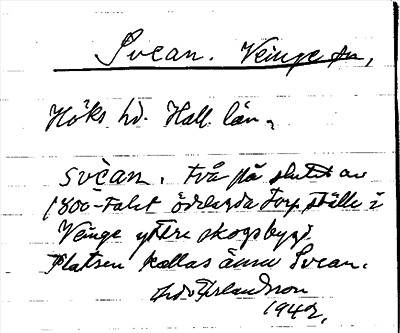 Svean. Veinge sn,
Höks hd. Hall. län.
svèan. Två på slutet av
1800-talet ödelagda torpställe i
Veinge yttre skogsbygd.
Platsen kallas ännu Svean.
1942.